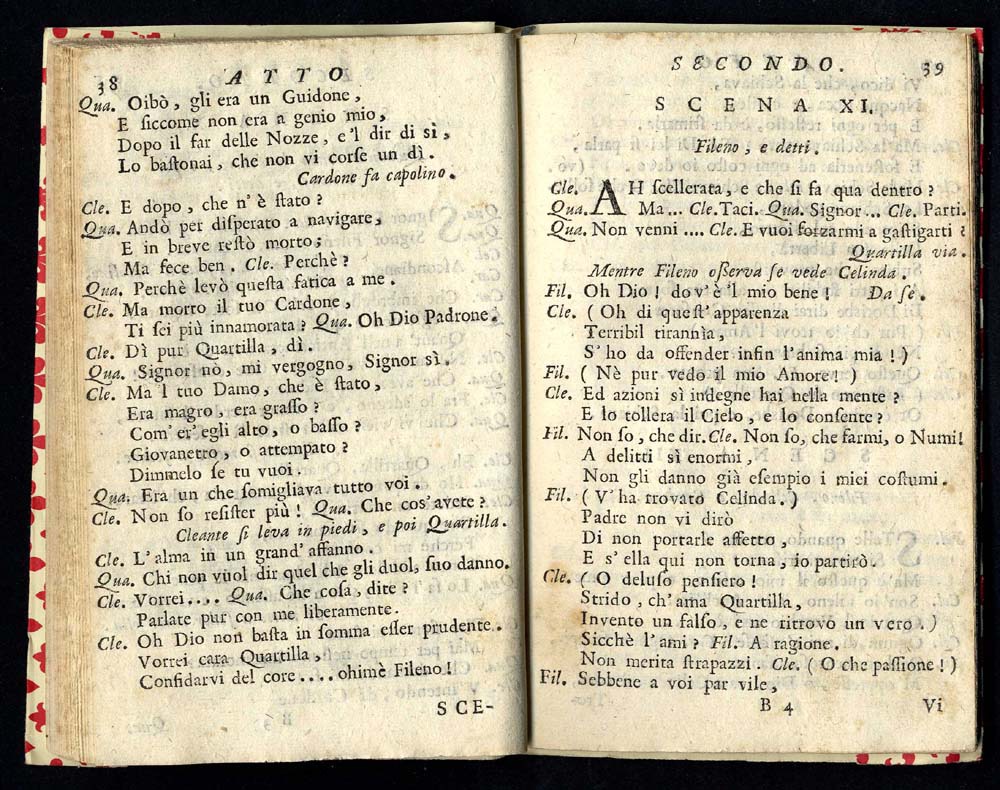 38 ATTO
Qua. Oibò, gli era un Guidone,
E ſiccome non era a genio mio,
Dopo il far delle Nozze, e'l dir di sì,
Lo baſtonai, che non vi corſe un dì.
Cardone fa capolino.
Cle. E dopo, che n'è ſtato?
Qua. Andò per diſperato a navigare,
E in breve reſtò morto;
Ma fece ben. Cle. Perchè?
Qua. Perchè levò queſta fatica a me.
Cle. Ma morto il tuo Cardone,
Ti ſei più innamorata? Qua. Oh Dio Padrone.
Cle. Dì pur Quartilla, dì.
Qua. Signor nò, mi vergogno, Signor sì.
Cle. Ma'l tuo Damo, che è ſtato,
Era magro, era graſſo?
Com'er'egli alto, o baſſo?
Giovanetto, o attempato?
Dimmelo ſe tu vuoi.
Qua. Era un che ſomigliava tutto voi.
Cle. Non ſo reſiſter più! Qua. Che cos'avete?
Cleante ſi leva in piedi, e poi Quartilla.
Cle. L'alma in un grand'affanno.
Qua. Chi non vuol dir quel che gli duol, ſuo danno.
Cle. Vorrei.... Qua. Che coſa, dite?
Parlate pur con me liberamente.
Cle. Oh Dio non baſta in ſomma eſſer prudente.
Vorrei cara Quartilla,
Confidarvi del core.... ohimè Fileno!
SCE-
SECONDO. 39
SCENA XI.
Fileno, e detti.
Cle. AH ſcellerata, e che ſi fa qua dentro?
Qua. Ma... Cle. Taci. Qua. Signor... Cle. Parti.
Qua. Non venni.... Cle. E vuoi forzarmi a gaſtigarti?
Quartilla via.
Mentre Fileno oſſerva ſe vede Celinda.
Fil. Oh Dio! dov'è'l mio bene? Da ſe.
Cle. (Oh di queſt'apparenza
Terribil tirannìa,
S'ho da offender infin l'anima mia!)
Fil. (Nè pur vedo il mio Amore!)
Cle. Ed azioni sì indegne hai nella mente?
E lo tollera il Cielo, e lo conſente?
Fil. Non ſo, che dir. Cle. Non ſo, che farmi, o Numi!
A delitti sì enormi,
Non gli danno già eſempio i miei coſtumi.
Fil. (V'ha trovato Celinda.)
Padre non vi dirò
Di non portarle affetto,
E s'ella qui non torna, io partirò.
Cle. (O deluſo penſiero!
Strido, ch'ama Quartilla,
Invento un falſo, e ne ritrovo un vero.)
Sicchè l'ami? Fil. A ragione.
Non merita ſtrapazzi. Cle. (O che paſſione!)
Fil. Sebbene a voi par vile,
B 4 Vi